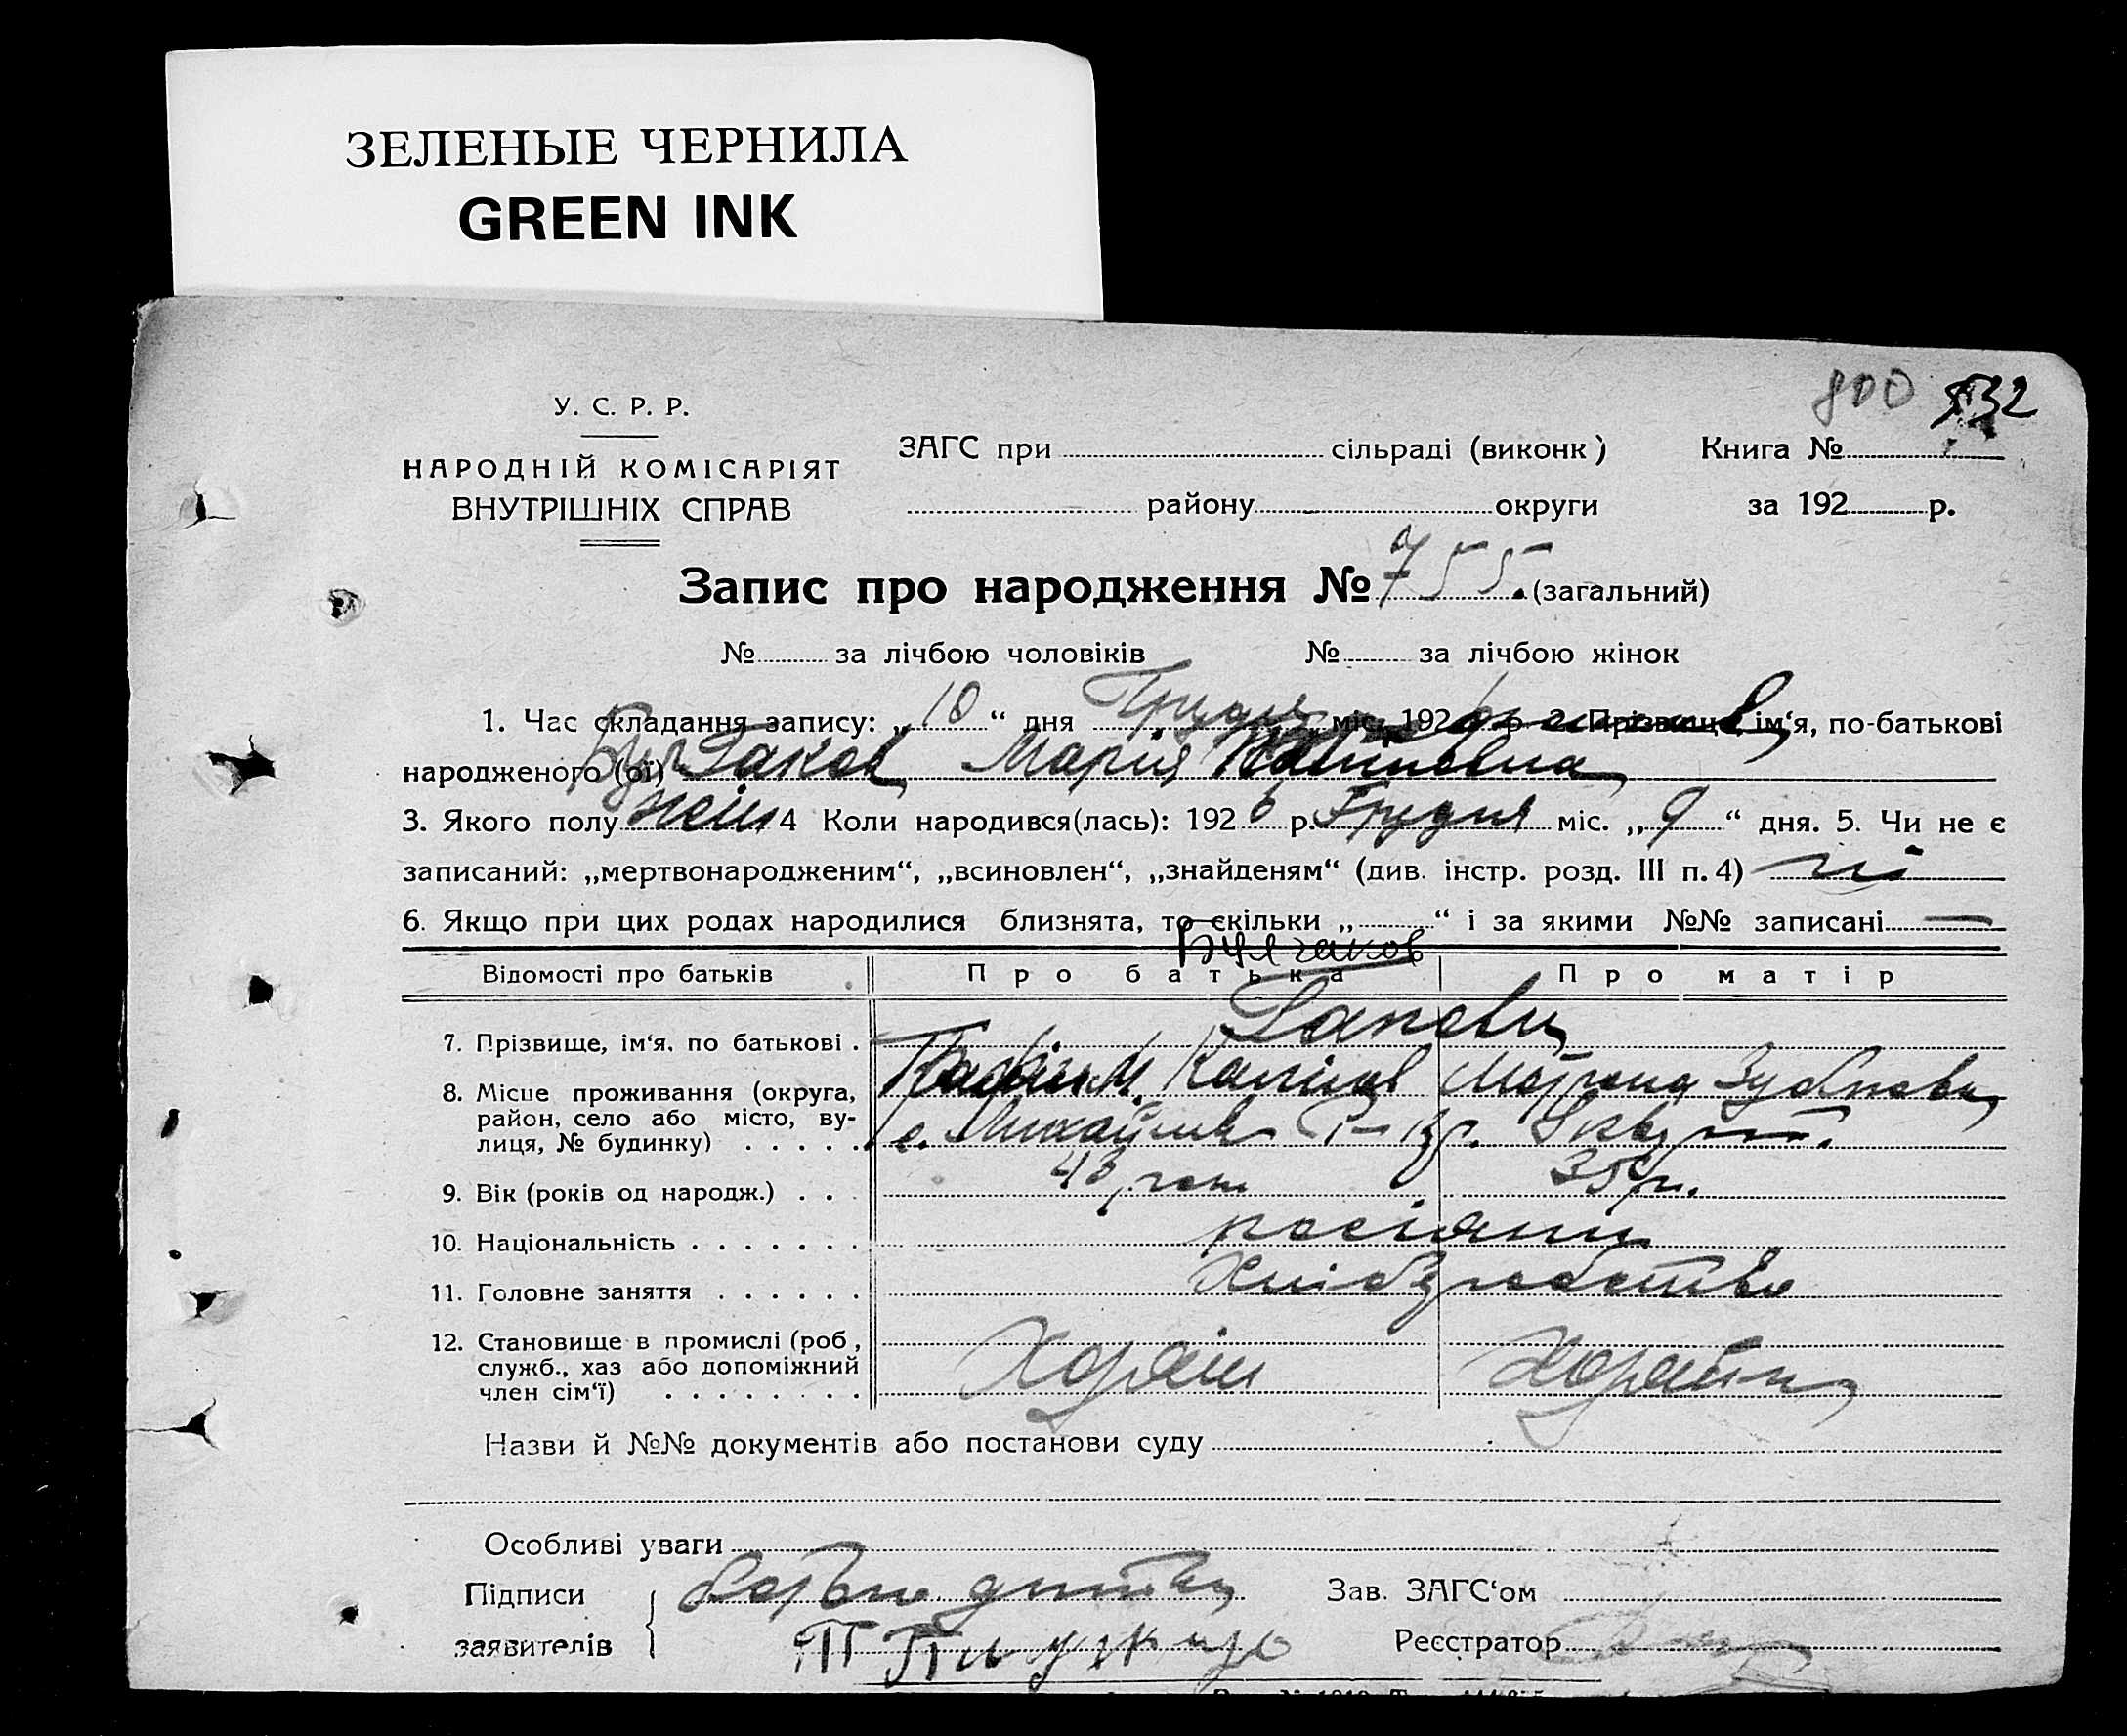 ЗЕЛЕНЫЕ ЧЕРНИЛА
GREEN INK
800 532
У. С. Р. Р.
НАРОДНІЙ КОМІСАРІЯТ
ВНУТРІШНІХ СПРАВ
ЗАГС при сільраді (виконк)
району округи
Книга №
за 192 р.
Запис про народження № 755. (загальний)
№ за лічбою чоловіків № за лічбою жінок
1. Час складання запису: „10“ дня Грудня міс. 1926 р. 2. Прізвище, ім‘я, по-батькові
народженого (ої) Марія
3. Якого полу жін 4 Коли народився(лась): 1926 р. Грудня міс. „9“ дня. 5. Чи не є
записаний: „мертвонародженим“, „всиновлен“, „знайденям“ (див. інстр. розд. III п. 4) ні
6. Якщо при цих родах народилися близнята, то скільки „ “ і за якими №№ записані —
Булгаков
Відомості про батьків Про батька Про матір
7. Прізвище, ім‘я, по батькові .
8. Місце проживання (округа,
район, село або місто, ву-
лиця, № будинку) . . . . . с.
9. Вік (років од народж.) . . . 43 роки 35 р.
10. Національність . . . . . . . росіяни
11. Головне заняття . . . . . . Хліборобство
12. Становище в промислі (роб,
служб., хаз або допоміжний
член сім‘ї) . . . . . . . . Хозяїн Хозяйка
Назви й №№ документів або постанови суду
Особливі уваги
Підписи
заявителів
Зав. ЗАГС‘ом
Реєстратор